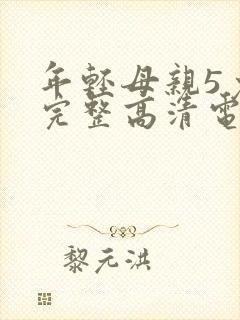 年轻母親5
完整高清電
黎元洪